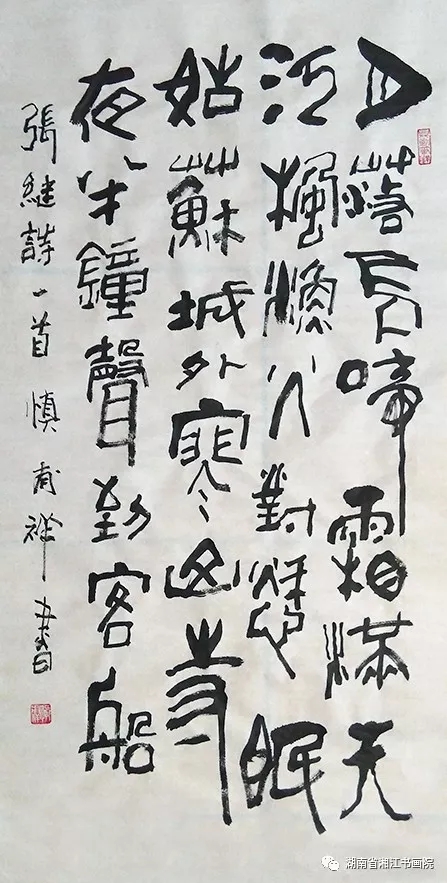 月落烏啼霜滿天
江楓漁火對愁眠
姑蘇城外寒山寺
夜半鐘聲到客船
張继詩一首 慎祥書
湖南省湘江书画院